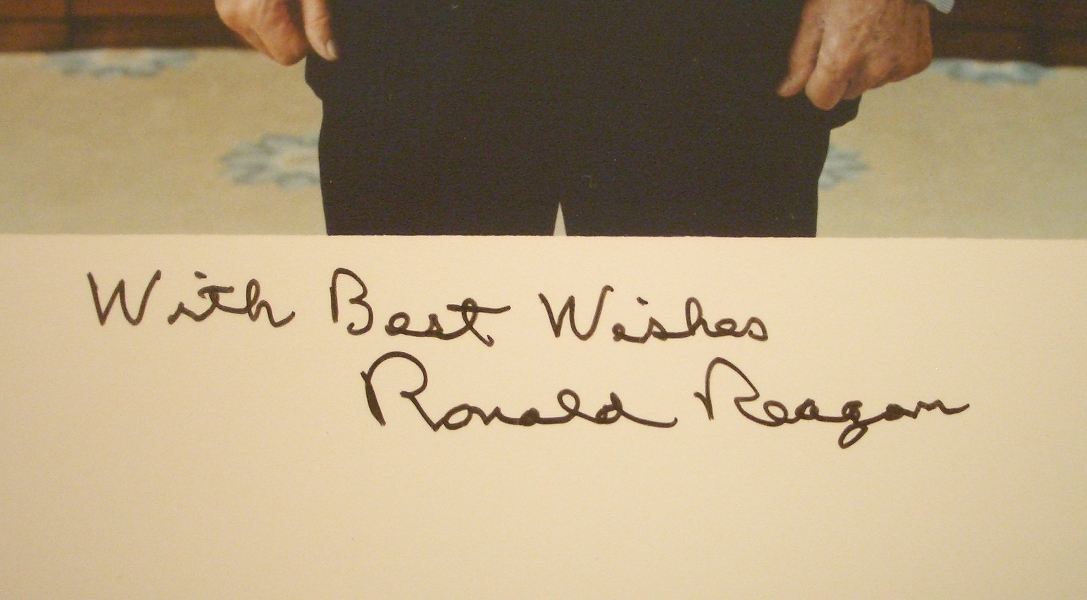 With Best Wishes
Ronald Reagan